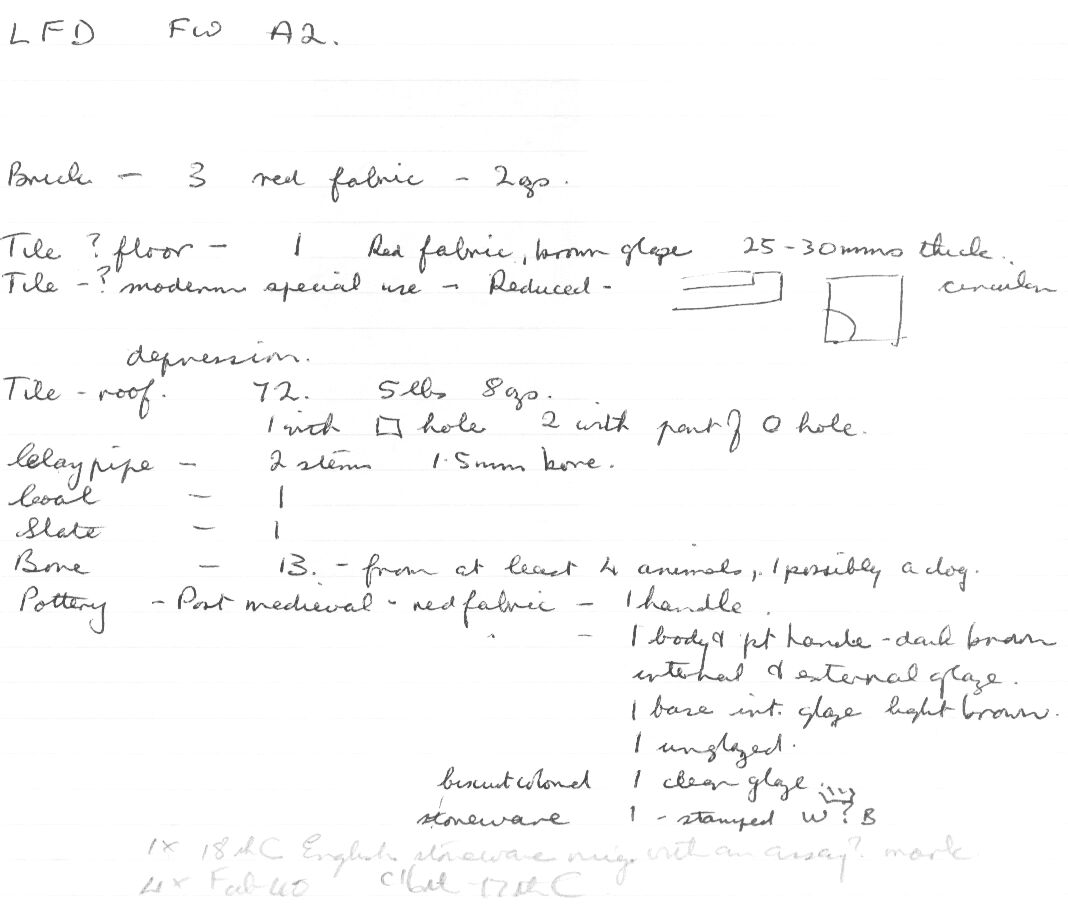 LFD FW A2.
Brick - 3 red fabric - 2ozs.
Tile ? floor - 1 Red fabric, brown glaze 25-30mms thick..
Tile - ? modern special use - Reduced - circular
depression.
Tile - roof. 72. 5lbs 8ozs.
1 with □ hole 2 with part of O hole.
Clay pipe - 2 stems 1.5mm bore.
Coal - 1
Slate - 1
Bone - 13. - from at least 4 animals, 1 possibly a dog.
Pottery - Post medieval - red fabric - 1 handle.
- 1 body & pt handle - dark brown
internal & external glaze.
1 base int. glaze light brown.
1 unglazed.
biscuit colored 1 clear glaze
stoneware 1 - stamped W ? B
1x 18thC English stoneware mug with an assay? mark
4x Fab 40 C16th-17thC